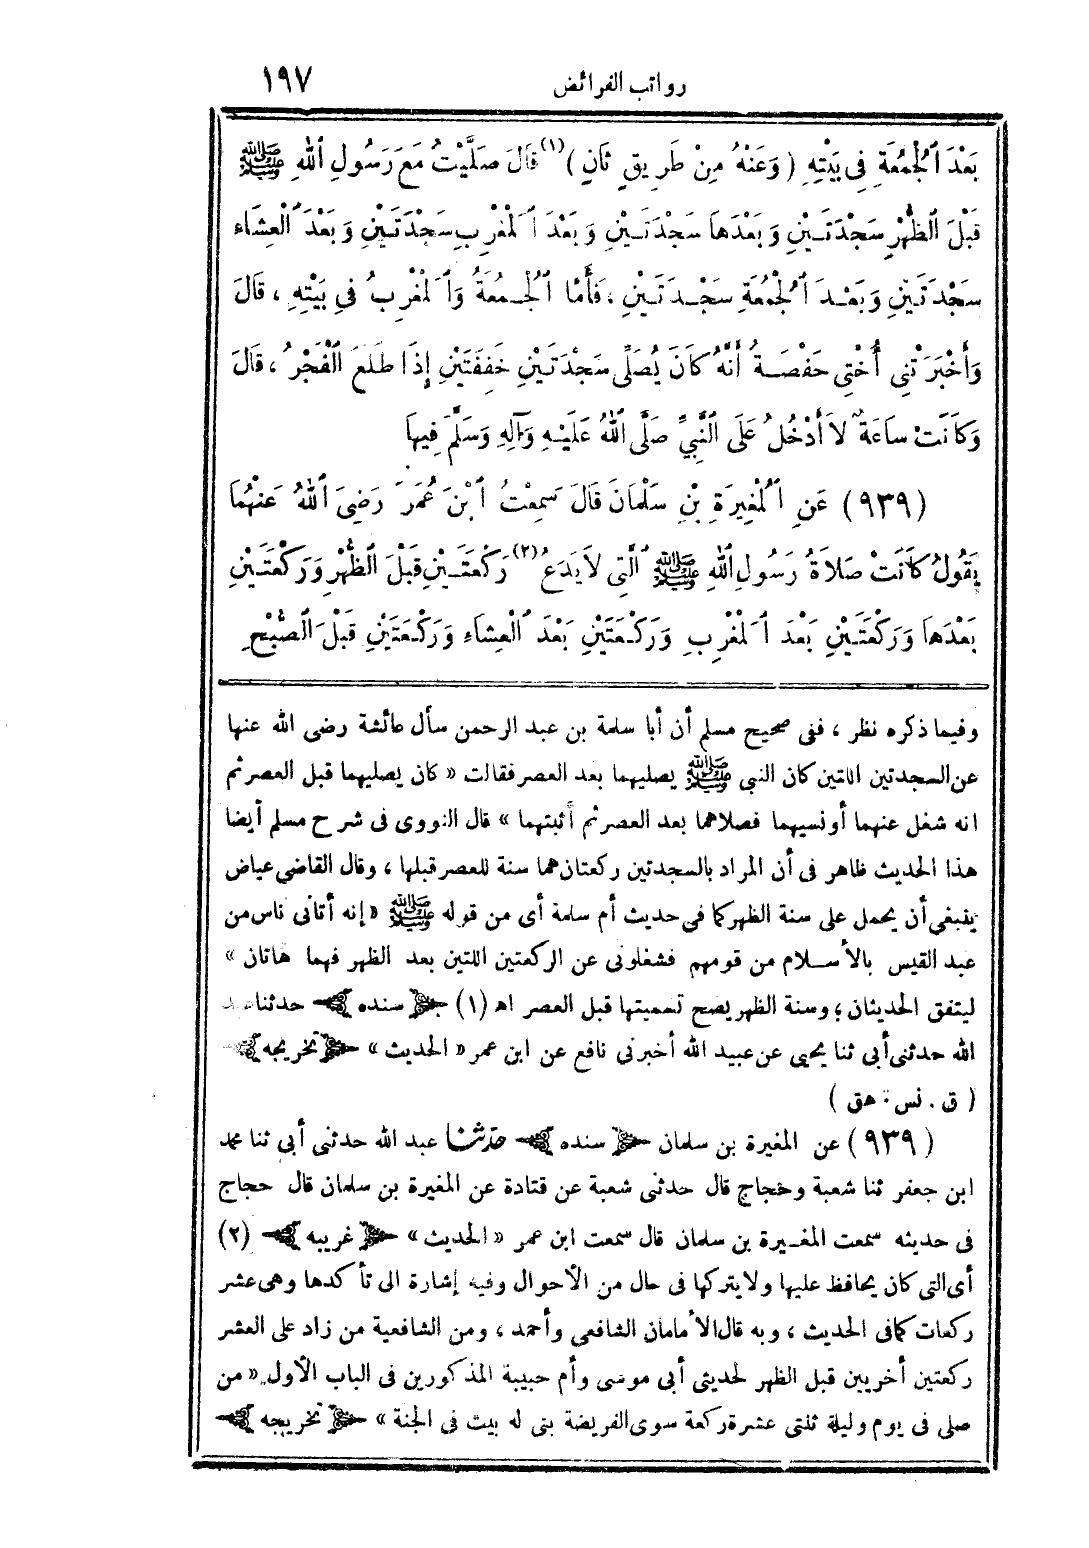 رواتب الفرائض ١٩٧
بَعْدَ ٱلْجُمُعَةِ فِى بَيْتِهِ (وَعَنْهُ مِنْ طَرِيقٍ ثَانٍ) (١) قَالَ صَلَّيْتُ مَعَ رَسُولِ ٱللهِ ﷺ
قَبْلَ ٱلظُّهْرِ سَجْدَتَيْنِ وَبَعْدَهَا سَجْدَتَيْنِ وَبَعْدَ ٱلْمَغْرِبِ سَجْدَتَيْنِ وَبَعْدَ ٱلْعِشَاء
سَجْدَتَيْنِ وَبَعْدَ ٱلْجُمُعَةِ سَجْدَتَيْنِ ، فَأَمَّا ٱلْجُمُعَةُ وَٱلْمَغْرِبُ فِى بَيْتِهِ ، قَالَ
وَأَخْبَرَتْنِى أُخْتِى حَفْصَةُ أَنَّهُ كَانَ يُصَلِّى سَجْدَتَيْنِ خَفِفَتَيْنِ إِذَا طَلَعَ ٱلْفَجْرُ ، قَالَ
وَكَانَتْ سَاعَةٌ لاَ أَدْخُلُ عَلَى ٱلنَّبِيِّ صَلَّى ٱللهُ عَلَيْهِ وَآلِهِ وَسَلَّمَ فِيهَا
(٩٣٩) عَنِ ٱلْمُغِيرَةِ بْنِ سَلْمَانَ قَالَ سَمِعْتُ ٱبْنَ عُمَرَ رَضِىَ ٱللهُ عَنْهُمَا
يَقُولُ كَانَتْ صَلاَةُ رَسُولِ ٱللهِ ﷺ ٱلَّتِى لاَ يَدَعُ (٢) رَكْعَتَيْنِ قَبْلَ ٱلظُّهْرِ وَرَكْعَتَيْنِ
بَعْدَهَا وَرَكْعَتَيْنِ بَعْدَ ٱلْمَغْرِبِ وَرَكْعَتَيْنِ بَعْدَ ٱلْعِشَاءِ وَرَكْعَتَيْنِ قَبْلَ ٱلصُّبْحِ
وفيما ذكره نظر ، ففى صحيح مسلم أن أبا سلمة بن عبد الرحمن سأل عائشة رضى الله عنها
عن السجدتين اللتين كان النبى ﷺ يصليهما بعد العصر فقالت « كان يصليهما قبل العصر ثم
انه شغل عنهما أو نسيهما فصلاهما بعد العصر ثم أثبتهما » قال النووى فى شرح مسلم أيضا
هذا الحديث ظاهر فى أن المراد بالسجدتين ركعتان هما سنة للعصر قبلها ، وقال القاضى عياض
ينبغى أن يحمل على سنة الظهر كما فى حديث أم سلمة أى من قوله ﷺ « إنه أتانى ناس من
عبد القيس بالأسلام من قومهم فشغلونى عن الركعتين اللتين بعد الظهر فهما هاتان »
ليتفق الحديثان ، وسنة الظهر يصح تسميتها قبل العصر اه (١) سنده حدثنا عبد
الله حدثنى أبى ثنا يحيى عن عبيد الله أخبرنى نافع عن ابن عمر « الحديث » تخريجه
(ق . نس . هق)
(٩٣٩) عن المغيرة بن سلمان سنده حدثنا عبد الله حدثنى أبى ثنا محمد
ابن جعفر ثنا شعبة وحجاج قال حدثنى شعبة عن قتادة عن المغيرة بن سلمان قال حجاج
فى حديثه سمعت المغيرة بن سلمان قال سمعت ابن عمر « الحديث » غريبه (٢)
أى التى كان يحافظ عليها ولا يتركها فى حال من الأحوال وفيه إشارة الى تأكدها وهى عشر
ركعات كما فى الحديث ، وبه قال الأمامان الشافعى وأحمد ، ومن الشافعية من زاد على العشر
ركعتين أخريين قبل الظهر لحديثى أبى موسى وأم حبيبة المذكورين فى الباب الأول « من
صلى فى يوم وليلة ثنتى عشرة ركعة سوى الفريضة بنى له بيت فى الجنة » تخريجه